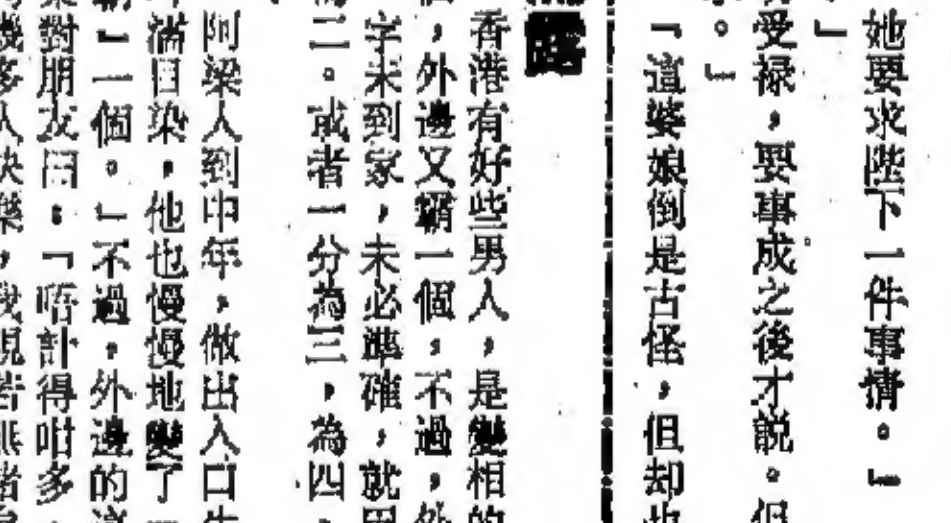 她要求陛下一件事情。」
受禄，要事成之後才説。但
。」
「這婆娘倒是古怪，但却也
香港有好些男人，是變相的
，外邊又霸一個，不過，外
字未到家，未必準確，就用
二。或者一分為三，為四，
阿梁人到中年，做出入口生
滿目染，他也慢慢地變了「
」一個。」不過，外邊的這
對朋友用：「唔計得咁多，
幾多人快樂，我視若無睹